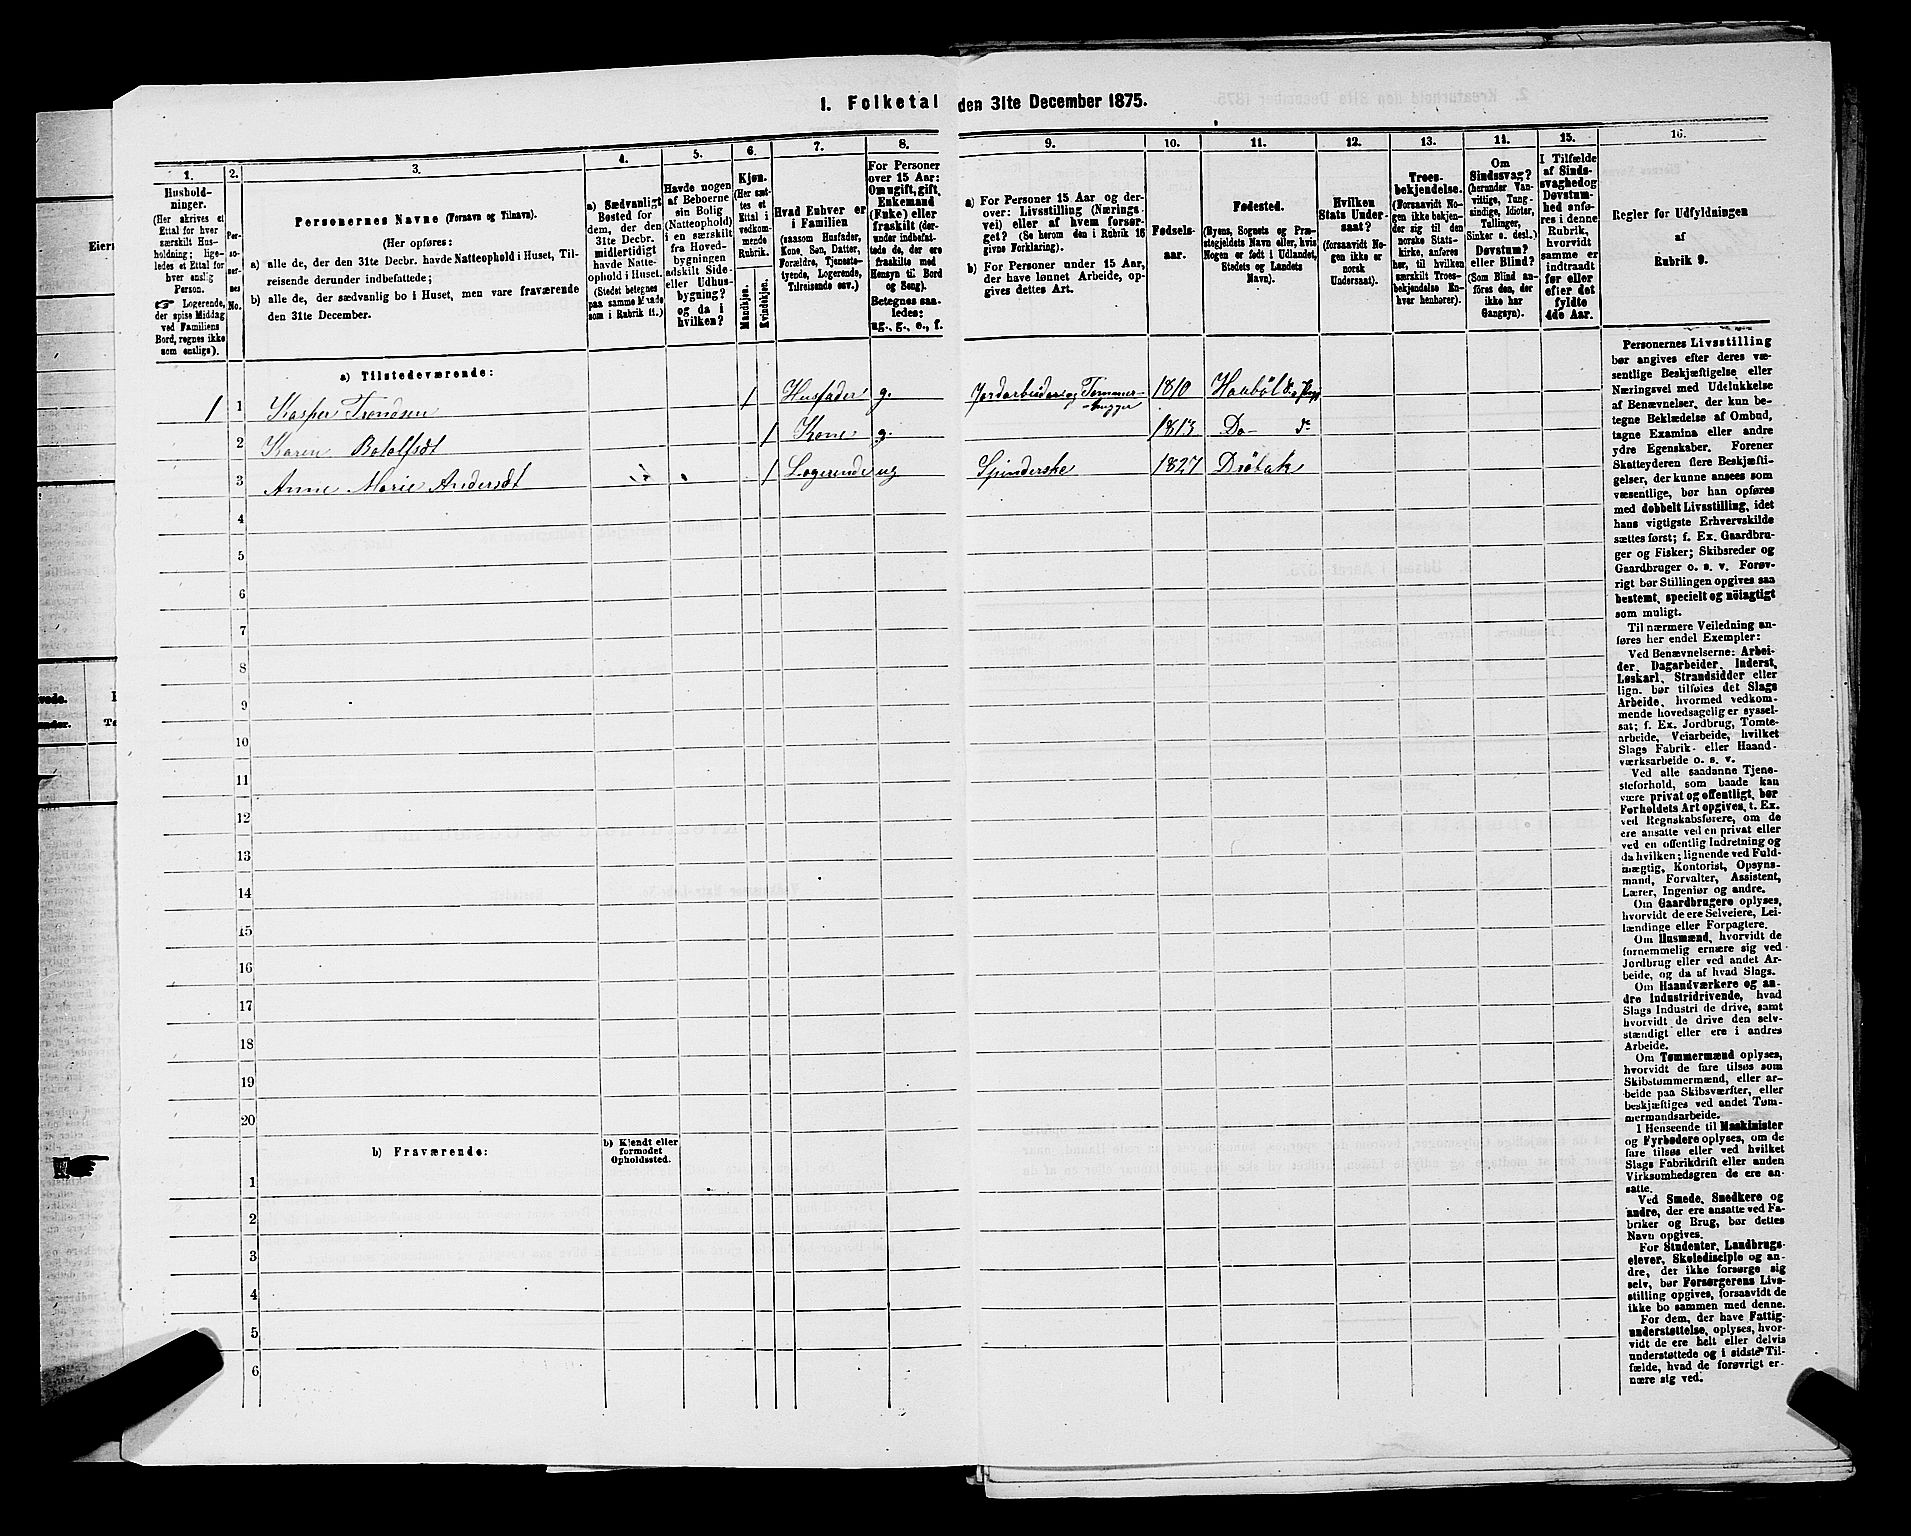 1. Folketal den 31te December 1875.
1.
Hushold-
ninger.
(Her skrives et
Ettal for hver
særskilt Hus-
holdning; lige-
ledes et Ettal for
hver enslig
Person.
Logerende,
der spise Middag
ved Familiens
Bord, regnes ikke
som enslige).
2.
Per-
so-
ner-
nes
No.
3.
Personernes Navne (Fornavn og Tilnavn).
(Her opføres:
a) alle de, der den 31te Decbr. havde Natteophold i Huset, Til-
reisende derunder indbefattede;
b) alle de, der sædvanlig bo i Huset, men vare fraværende
den 31te December.
4.
a) Sædvanligt
Bosted for
dem, der den
31te Decbr.
midlertidigt
havde Natte-
ophold i Huset.
(Stedet betegnes
paa samme Maade
som i Rubrik 11.)
5.
Havde nogen
af Beboerne
sin Bolig
(Natteophold)
i en særskilt
fra Hoved-
bygningen
adskilt Side-
eller Udhus-
bygning?
og da i
hvilken?
6.
Kjøn.
(Her sæt-
tes et
Ettal i
vedkom-
mende
Rubrik.
Mandkjøn.
Kvindekjøn.
7.
Hvad Enhver er
i Familien
(saasom Husfader,
Kone, Søn, Datter,
Forældre, Tjeneste-
tyende, Logerende,
Tilreisende osv.)
8.
For Personer
over 15 Aar:
Om ugift, gift,
Enkemand
(Enke) eller
fraskilt (der-
under indbefat-
tede de, der ere
fraskilte med
Hensyn til Bord
og Seng).
Betegnes saa-
ledes:
ug., g., e., f.
9.
a) For Personer 15 Aar og der-
over: Livsstilling (Nærings
vei) eller af hvem forsør-
get? (Se herom den i Rubrik 16
givne Forklaring).
b) For Personer under 15 Aar,
der have lønnet Arbeide, op-
gives dettes Art.
10.
Fødsels-
aar.
11.
Fødested.
(Byens, Sognets og Præ-
stegjeldets Navn eller, hvis
Nogen er født i Udlandet,
Stedets og Landets
Navn).
12.
Hvilken
Stats Under-
saat?
(forsaavidt No-
gen ikke er
norsk
Undersaat).
13.
Troes-
bekjendelse.
(Forsaavidt No-
gen ikke bekjen-
der sig til den
norske Stats-
kirke, anføres
her, til hvilken
særskilt Troes-
bekjendelse En-
hver henhører).
14.
Om
Sindssvag?
(herunder Van-
vittige, Tung-
sindige, Idioter,
Tullinger,
Sinker o. desl.)
Døvstum?
eller Blind?
(Som Blind an-
føres den, der
ikke har
Gangsyn).
15.
I Tilfælde
af Sinds-
svaghed og
Døvstum-
hed anfø-
res i denne
Rubrik,
hvorvidt
samme er
indtraadt
før eller
efter det
fyldte
4de Aar.
16.
Regler for Udfyldningen
af
Rubrik 9.
a) Tilstedeværende:
1 1 Kasper Trondsen 1 Husfader g. Jordarbeider og Tømmer- 1810 Haabøl
-hugger
2 Karen Botolfsdt 1 Kone g. 1813 Do
3 Anne Marie Andersdt 1 Logerende ug Spinderske 1827 Drøbak
4
5
6
7
8
9
10
11
12
13
14
15
16
17
18
19
20
b) Fraværende:
b) Kjendt eller
formodet
Opholdssted.
1
2
3
4
5
6
Personernes Livsstilling
bør angives efter deres væ-
sentlige Beskjæftigelse eller
Næringsvei med Udelukkelse
af Benævnelser, der kun be-
tegne Beklædelse af Ombud,
tagne Examina eller andre
ydre Egenskaber. Forener
Skatteyderen flere Beskjæfti-
gelser, der kunne ansees som
væsentlige, bør han opføres
med dobbelt Livsstilling, idet
hans vigtigste Erhvervskilde
sættes først; f. Ex. Gaardbru-
ger og Fisker; Skibsreder og
Gaardbruger o. s. v. Forøv-
rigt bør Stillingen opgives saa
bestemt, specielt og nöiagtigt
som muligt.
Til nærmere Veiledning an-
føres her endel Exempler:
Ved Benævnelserne: Arbei-
der, Dagarbeider, Inderst,
Løskarl, Strandsidder eller
lign. bør tilføies det Slags
Arbeide, hvormed vedkom-
mende hovedsagelig er syssel-
sat; f. Ex. Jordbrug, Tomte-
arbeide, Veiarbeide, hvilket
Slags Fabrik- eller Haand-
værksarbeide o. s. v.
Ved alle saadanne Tjene-
steforhold, som baade kan
være privat og offentligt, bør
Forholdets Art opgives, t. Ex.
ved Regnskabsførere, om de
ere ansatte ved en privat eller
ved en offentlig Indretning og
da hvilken; lignende ved Fuld-
mægtig, Kontorist, Opsyns-
mand, Forvalter, Assistent,
Lærer, Ingeniør og andre.
Om Gaardbrugere oplyses,
hvorvidt de ere Selveiere, Lei-
lændinge eller Forpagtere.
Om Husmænd, hvorvidt de
fornemmelig ernære sig ved
Jordbrug eller ved andet Ar-
beide, og da af hvad Slags.
Om Haandværkere og an-
dre Industridrivende, hvad
Slags Industri de drive, samt
hvorvidt de drive den selv-
stændigt eller ere i andres
Arbeide.
Om Tømmermænd oplyses,
hvorvidt de fare tilsøs som
Skibstømmermænd, eller ar-
beide paa Skibsværfter, eller
beskjæftiges ved andet Tøm-
mermandsarbeide.
I Henseende til Maskinister
og Fyrbødere oplyses, om de
fare tilsøs eller ved hvilket
Slags Fabrikdrift eller anden
Virksomhedsgren de ere an-
satte.
Ved Smede, Snedkere og
andre, der ere ansatte ved Fa-
briker og Brug, bør dettes
Navn opgives.
For Studenter, Landbrugs-
elever, Skoledisciple og an-
dre, der ikke forsørge sig
selv, bør Forsørgerens Livs-
stilling opgives, forsaavidt de
ikke bo sammen med denne.
For dem, der have Fattig-
understøttelse, oplyses, hvor-
vidt de ere helt eller delvis
understøttede og i sidste Til-
fælde, hvad de forøvrigt er-
nære sig ved.